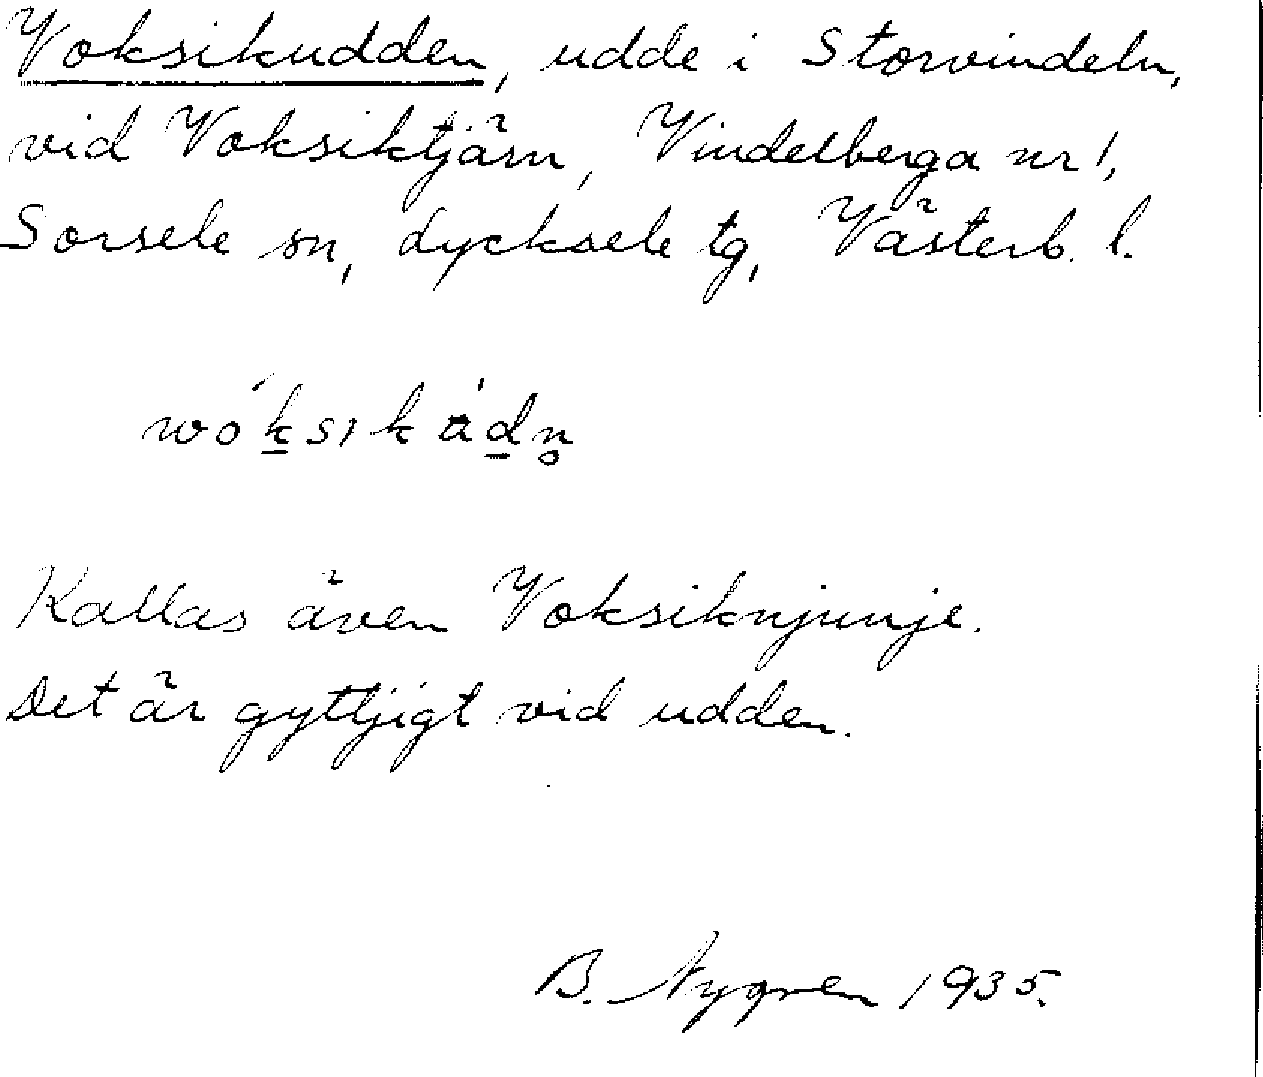 Voksikudden, udde i Storvindeln,
vid Voksiktjärn, Vindelberga nr 1,
Sorsele sn, Lycksele tg, Västerb. l.
Kallas även Voksiknjunje.
Det är gyttjigt vid udden.
B. Nygren 1935.